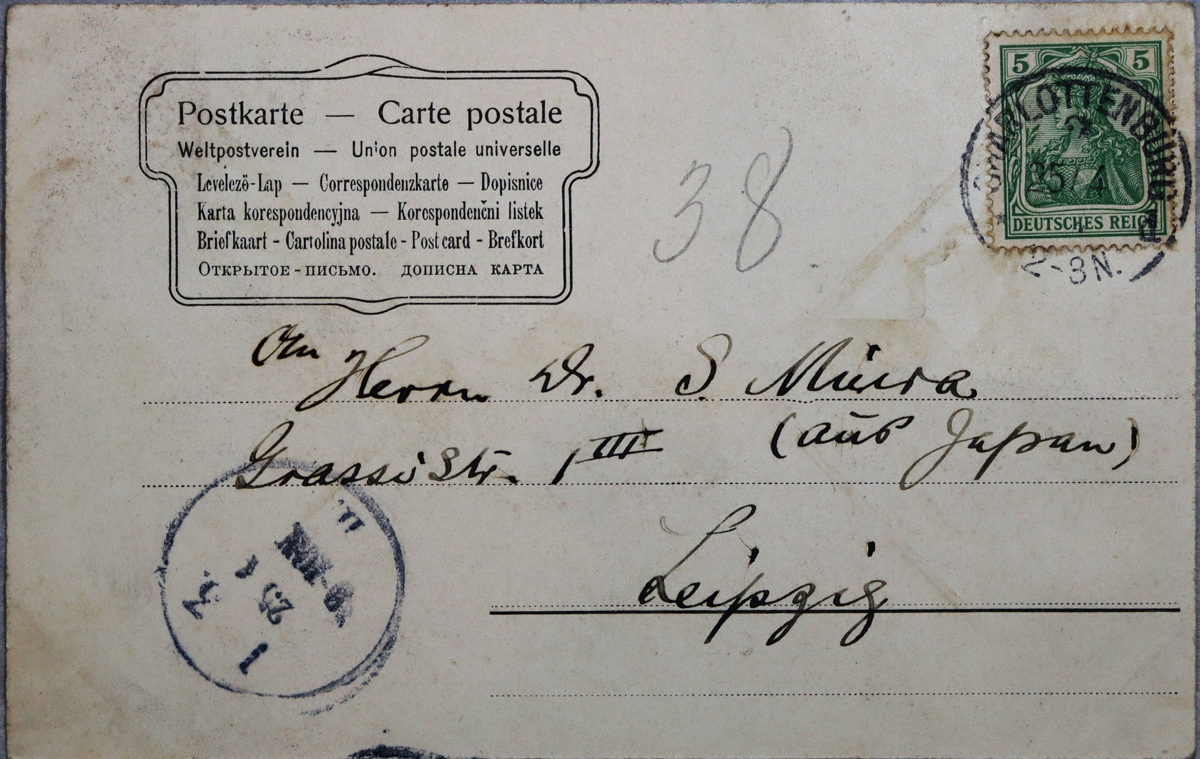 Postkarte — Carte postale
Weltpostverein — Union postale universelle
Levelezö-Lap — Correspondenzkarte — Dopisnice
Karta korespondencyjna — Korespondenčni listek
Briefkaart - Cartolina postale - Post card - Brefkort
ОТКРЫТОЕ-ПИСЬМО. ДОПИСНА КАРТА
5 5
DEUTSCHES REICH
CHARLOTTENBURG
2
25/4
2-3N.
d
38
An
Herrn Dr. S. Miura
(aus Japan)
Grassistr. 1 III
Leipzig
25